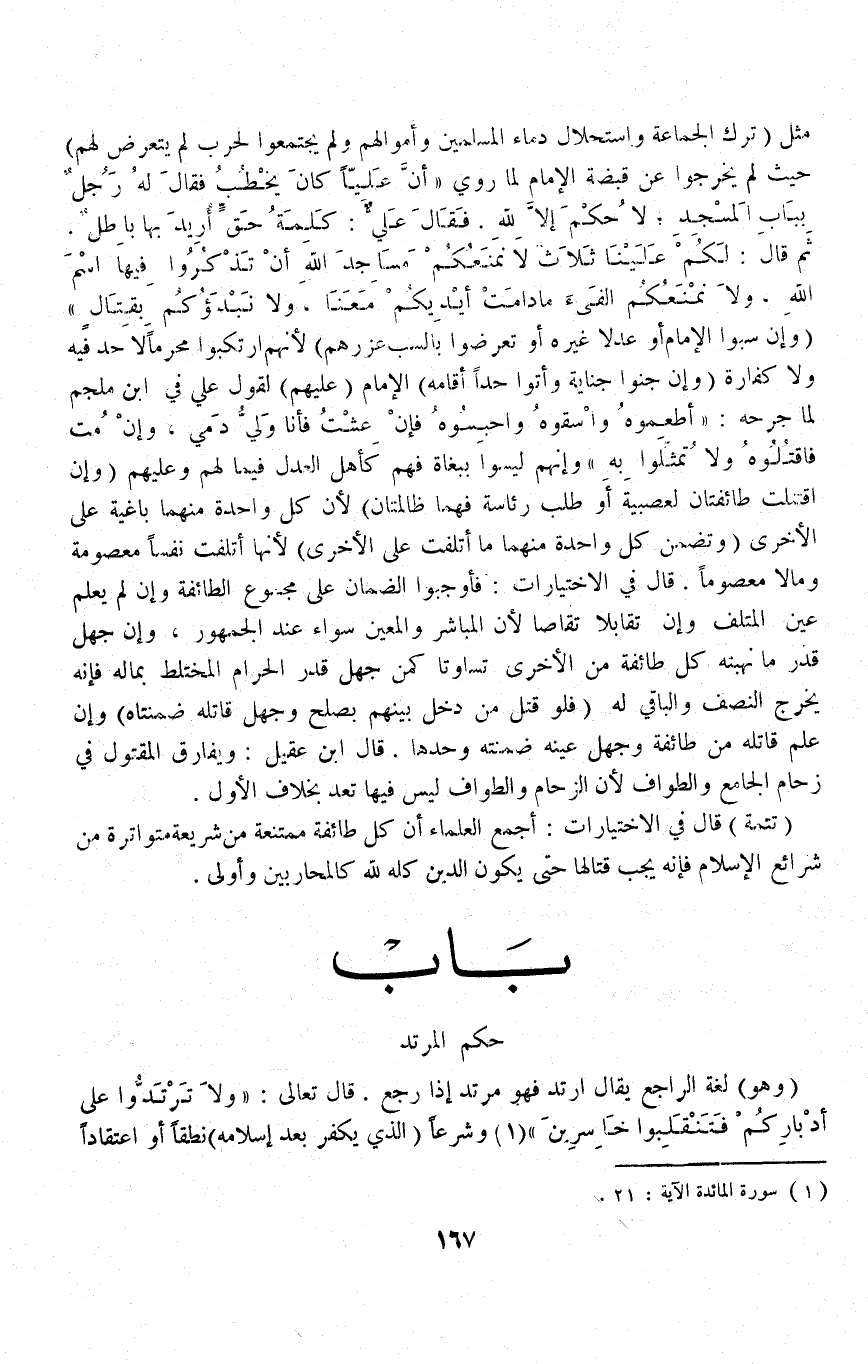 مثل ( ترك الجماعة واستحلال دماء المسلمين وأموالهم ولم يجتمعوا لحرب لم يتعرض لهم)
حيث لم يخرجوا عن قبضة الإمام لما روي « أنَّ عَلَيّاً كانَ يَخْطُبُ فقالَ لهُ رَجُلٌ
بِبَابِ المَسْجِدِ : لا حُكْمَ إلاَّ لِلهِ . فَقَالَ عَلَيٌّ : كَلِمَةُ حَقٍّ أُرِيدَ بها باطِلٌ .
ثم قال : لَكُمْ عَلَيْنَا ثَلاَثٌ لاَ نَمْنَعُكُمْ مَسَاجِدَ اللهِ أنْ تَذْكُرُوا فِيها اسْمَ
اللهِ . ولاَ نَمْنَعُكُم الفَيءَ مادامَتْ أيْدِيكُمْ مَعَنَا . ولا نَبْدَؤُكُم بِقِتَالٍ »
(وإن سبوا الإمام أو عدلا غيره أو تعرضوا بالسب عزرهم) لأنهم ارتكبوا محرماً لا حد فيه
ولا كفارة (وإن جنوا جناية وأتوا حداً أقامه) الإمام ( عليهم) لقول علي في ابن ملجم
لما جرحه : « أطعِموهُ واسْقوهُ واحبِسُوهُ فإنْ عِشْتُ فأنا وَليُّ دَمي ، وإنْ مُت
فاقتُلُوهُ ولا تُمثِّلُوا بِهِ » وإنهم ليسوا ببغاة فهم كأهل العدل فيما لهم وعليهم (وإن
اقتتلت طائفتان لعصبية أو طلب رئاسة فهما ظالمتان) لأن كل واحدة منهما باغية على
الأخرى (وتضمن كل واحدة منهما ما أتلفت على الأخرى) لأنها أتلفت نفساً معصومة
ومالا معصوماً . قال في الاختيارات : فأوجبوا الضمان على مجموع الطائفة وإن لم يعلم
عين المتلف وإن تقابلا تقاصا لأن المباشر والمعين سواء عند الجمهور ، وإن جهل
قدر ما نهبته كل طائفة من الأخرى تساوتا كمن جهل قدر الحرام المختلط بماله فإنه
يخرج النصف والباقي له ( فلو قتل من دخل بينهم بصلح وجهل قاتله ضمنتاه) وإن
علم قاتله من طائفة وجهل عينه ضمنته وحدها . قال ابن عقيل : ويفارق المقتول في
زحام الجامع والطواف لأن الزحام والطواف ليس فيها تعد بخلاف الأول .
( تتمة ) قال في الاختيارات : أجمع العلماء أن كل طائفة ممتنعة من شريعة متواترة من
شرائع الإسلام فإنه يجب قتالها حتى يكون الدين كله لله كالمحاربين وأولى .
بَابْ
حكم المرتد
(وهو) لغة الراجع يقال ارتد فهو مرتد إذا رجع . قال تعالى : « ولاَ تَرْتَدُّوا على
أدْبارِكُمْ فَتَنْقَلِبوا خَاسِرِينَ »(١) وشرعاً ( الذي يكفر بعد إسلامه) نطقاً أو اعتقاداً
( ١ ) سورة المائدة الآية : ٢١ .
١٦٧